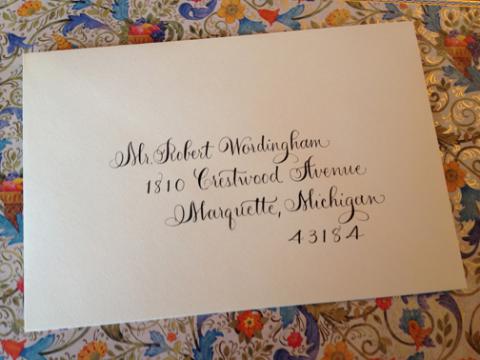 Mr. Robert Wordingham
1810 Crestwood Avenue
Marquette, Michigan
43184